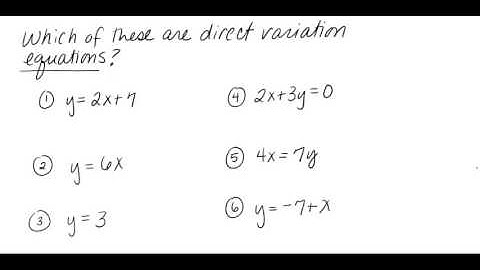 Which of these are direct variation
equations?
① y=2x+7
② y=6x
③ y=3
④ 2x+3y=0
⑤ 4x=7y
⑥ y=-7+x